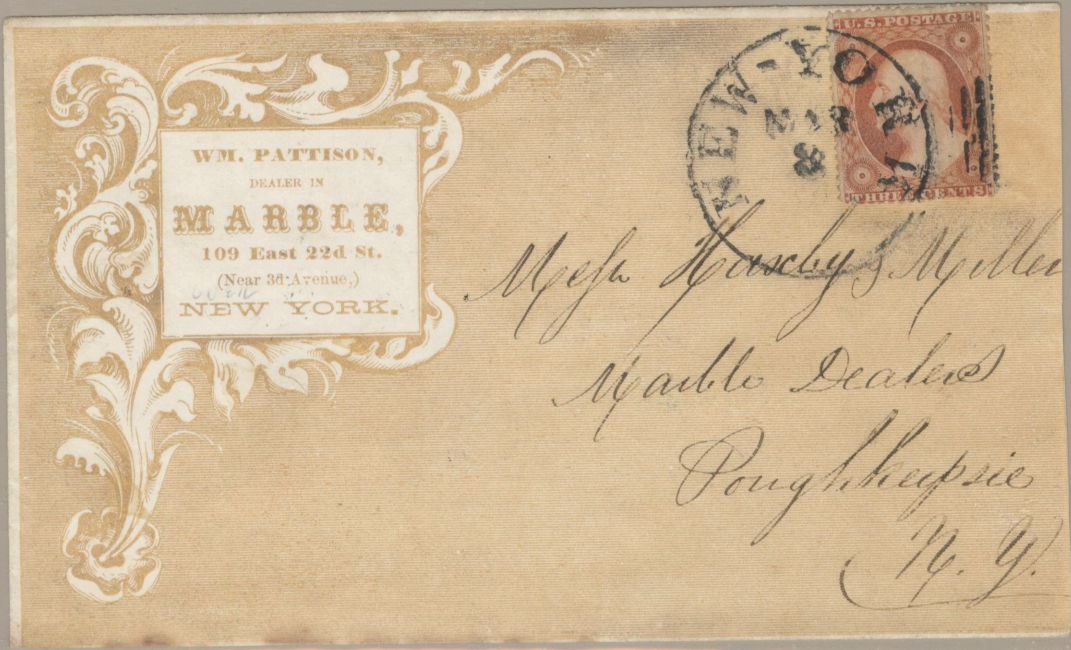 WM. PATTISON,
DEALER IN
MARBLE,
109 East 22d St.
(Near 3d Avenue,)
NEW YORK.
NEW-YO
MAR
8
U.S. POSTAGE
THREE CENTS
Mess Haxby & Miller
Marble Dealers
Poughkeepsie
N. Y.